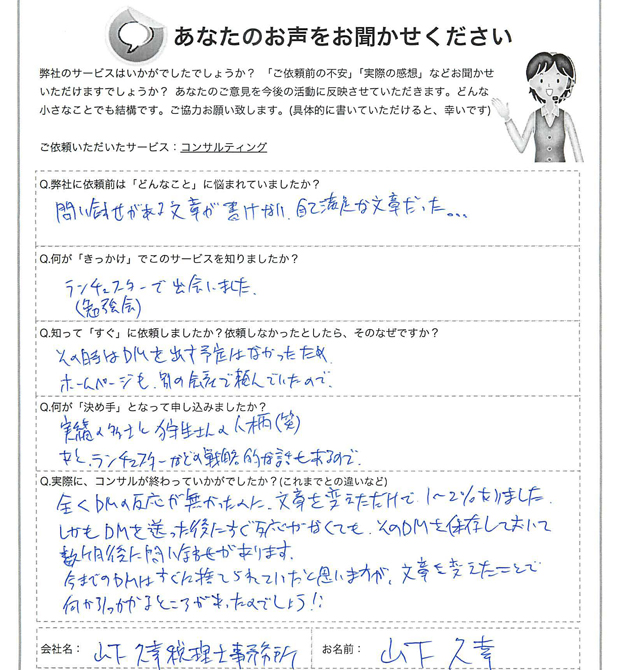 あなたのお声をお聞かせください
弊社のサービスはいかがでしたでしょうか？ 「ご依頼前の不安」「実際の感想」などお聞かせ
いただけますでしょうか？ あなたのご意見を今後の活動に反映させていただきます。どんな
小さなことでも結構です。ご協力お願い致します。(具体的に書いていただけると、幸いです)
ご依頼いただいたサービス：コンサルティング
Q.弊社に依頼前は「どんなこと」に悩まれていましたか？
問い合せがある文章が書けない、自己満足な文章だった。。。
Q.何が「きっかけ」でこのサービスを知りましたか？
ランチェスターで出会いました.
(勉強会)
Q.知って「すぐ」に依頼しましたか？依頼しなかったとしたら、そのなぜですか？
その時はDMを出す予定はなかったため.
ホームページも、別の会社で頼んでいたので.
Q.何が「決め手」となって申し込みましたか？
実績の多さと狩生さんの人柄(笑)
あと、ランチェスターなどの戦略的な話も来るので.
Q.実際に、コンサルが終わっていかがでしたか？(これまでとの違いなど)
全くDMの反応が無かったのに、文章を変えただけで 1〜2%ありました.
しかもDMを送った後にすぐ反応がなくても、そのDMを保存しておいて
数ヶ月後に問い合わせがあります.
今までのDMはすぐに捨てられていたと思いますが、文章を変えたことで
何か引っかかるところがあったのでしょう!!
会社名： 山下久幸税理士事務所 お名前： 山下 久幸